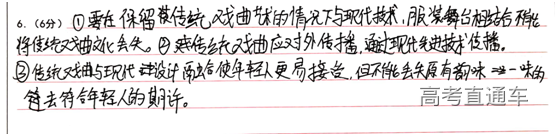 6.(6分)①要在保留其传统戏曲艺术的情况下与现代技术,服装舞台相结合不能
将传统戏曲文化丢失。②在传统戏曲应对外传播,通过现代先进技术传播。
③传统戏曲与现代设计而结合使年轻人更易接受,但不能丢失原有韵味 一味的
去符合年轻人的期许。
高考直通车